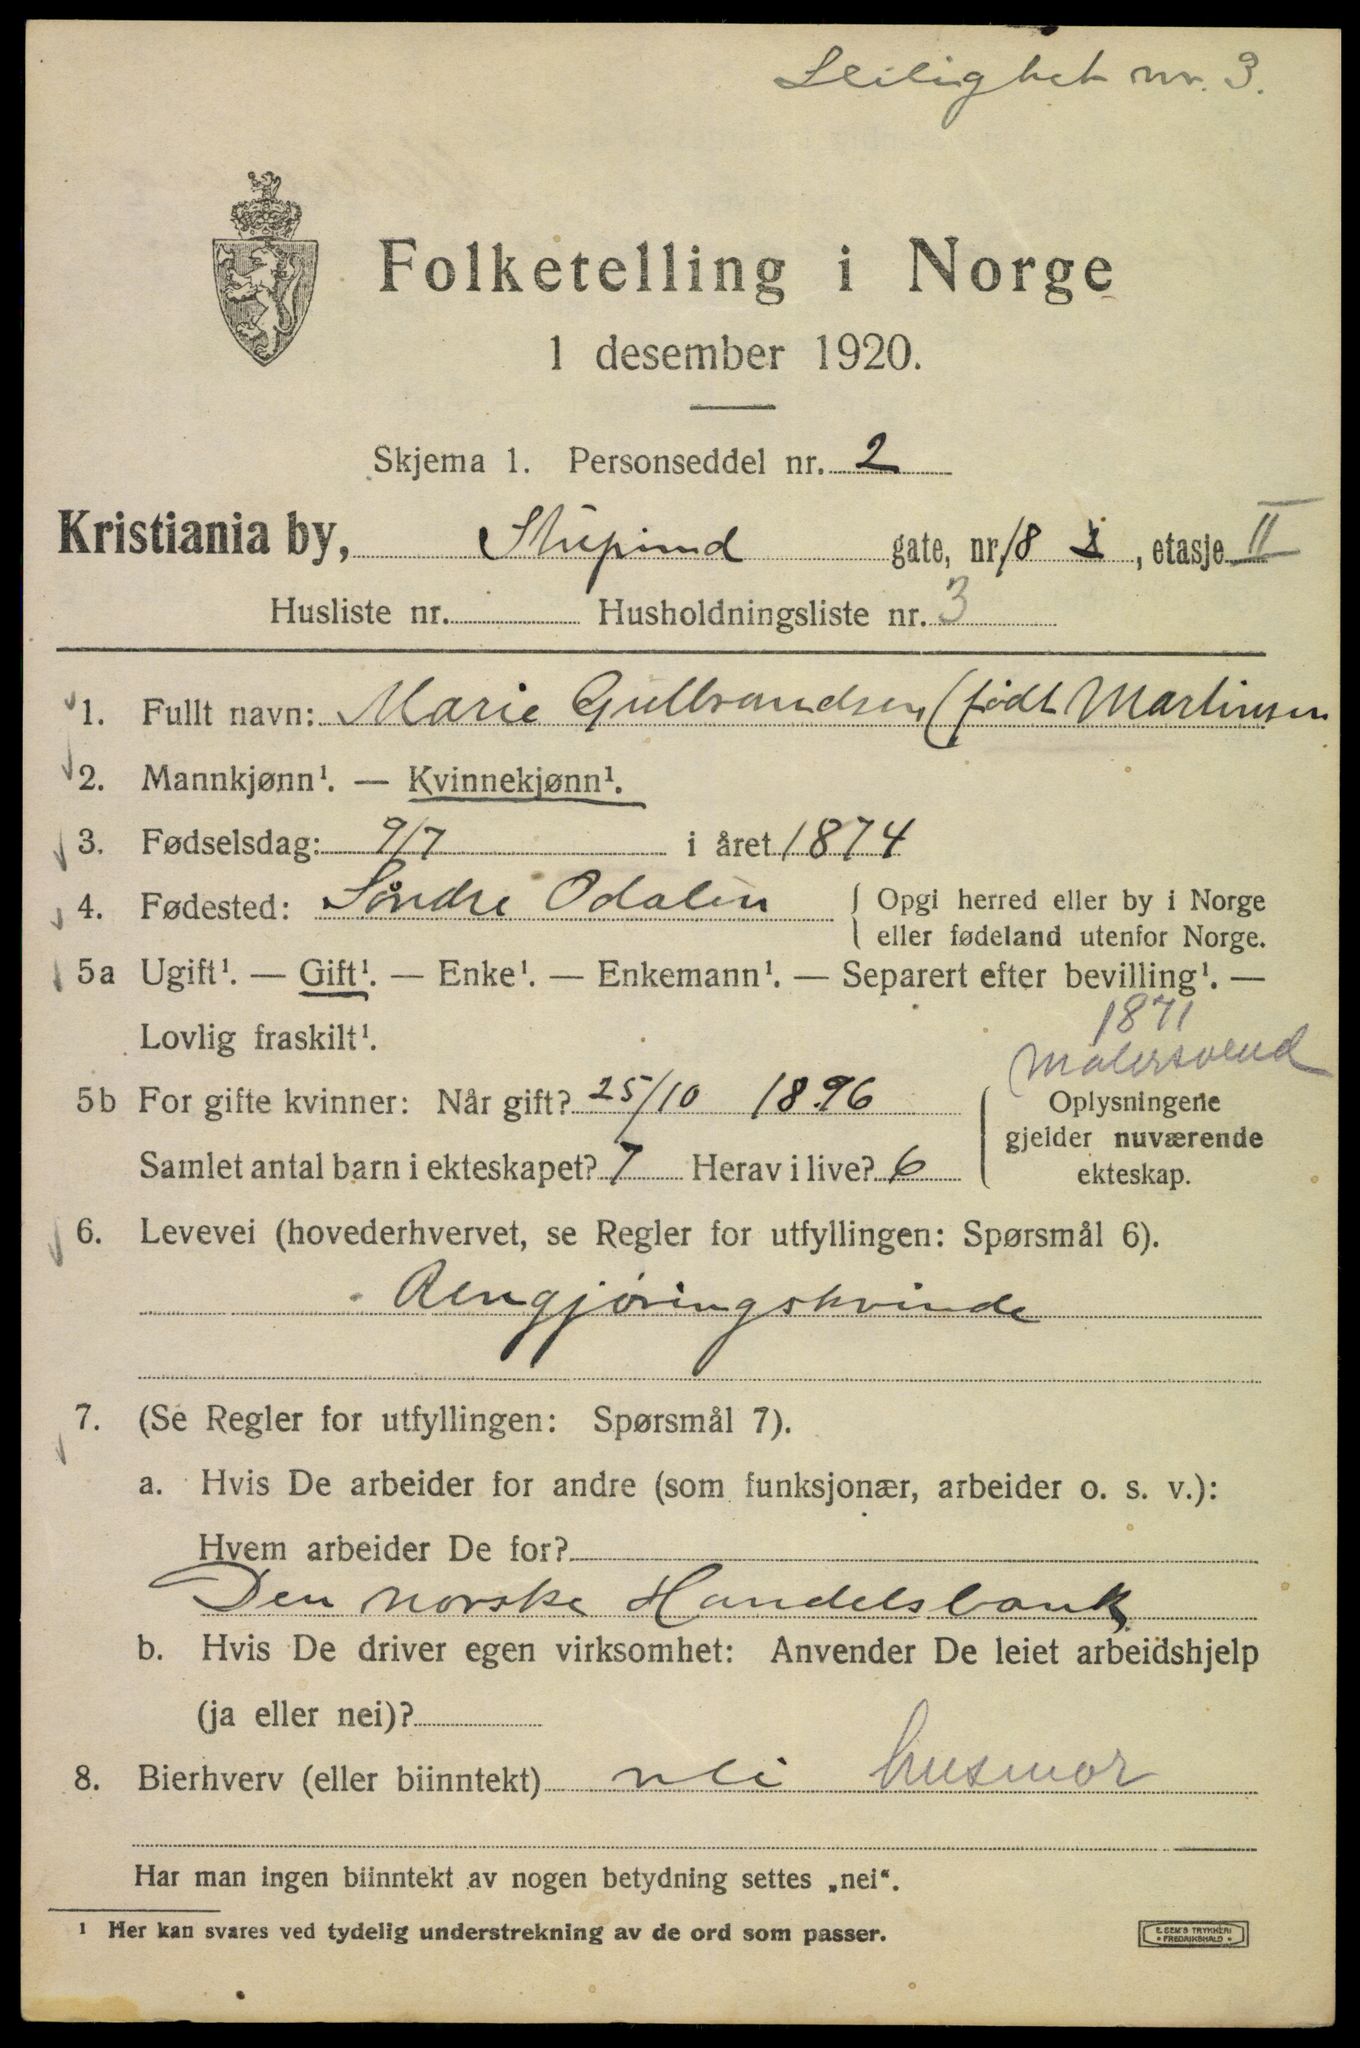 Leilighet nr. 3.
Folketelling i Norge
1 desember 1920.
Skjema 1. Personseddel nr. 2
Kristiania by, gate, nr. 18, etasje II
Husliste nr. Husholdningsliste nr. 3
1. Fullt navn: Marie Gulbrandsen (født Martinsen
2. Mannkjønn¹. — Kvinnekjønn¹.
3. Fødselsdag: 9/7 i året 1874
4. Fødested: Søndre Odalen { Opgi herred eller by i Norge
eller fødeland utenfor Norge.
5a Ugift¹. — Gift¹. — Enke¹. — Enkemann¹. — Separert efter bevilling¹. —
Lovlig fraskilt¹.
1871
Malersvend
5b For gifte kvinner: Når gift? 25/10 1896
Samlet antal barn i ekteskapet? 7 Herav i live? 6
Oplysningene
gjelder nuværende
ekteskap.
6. Levevei (hovederhvervet, se Regler for utfyllingen: Spørsmål 6).
Rengjøringskvinde
7. (Se Regler for utfyllingen: Spørsmål 7).
a. Hvis De arbeider for andre (som funksjonær, arbeider o. s. v.):
Hvem arbeider De for?
Den norske Handelsbank
b. Hvis De driver egen virksomhet: Anvender De leiet arbeidshjelp
(ja eller nei)?
8. Bierhverv (eller biinntekt) nei husmor
Har man ingen biinntekt av nogen betydning settes „nei“.
¹ Her kan svares ved tydelig understrekning av de ord som passer.
E. SEM'S TRYKKERI
• FREDRIKSHALD •